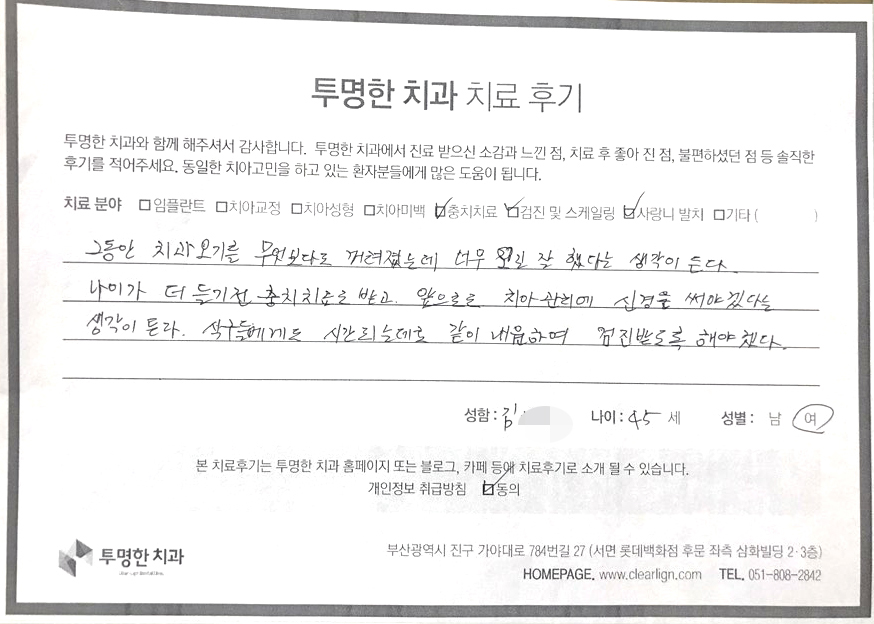 투명한 치과 치료 후기
투명한 치과와 함께 해주셔서 감사합니다. 투명한 치과에서 진료 받으신 소감과 느낀 점, 치료 후 좋아 진 점, 불편하셨던 점 등 솔직한
후기를 적어주세요. 동일한 치아고민을 하고 있는 환자분들에게 많은 도움이 됩니다.
치료 분야 □임플란트 □치아교정 □치아성형 □치아미백 ☑충치치료 ☑검진 및 스케일링 ☑사랑니 발치 □기타 ( )
그동안 치과 오기를 무엇보다도 꺼려졌는데 너무 잘 했다는 생각이 든다.
나이가 더 들기전 충치치료를 받고. 앞으로도 치아관리에 신경을 써야겠다는
생각이 든다. 식구들에게도 시간되는데로 같이 내원하여 검진받도록 해야겠다.
성함: 김 나이: 45 세 성별: 남 여
본 치료후기는 투명한 치과 홈페이지 또는 블로그, 카페 등에 치료후기로 소개 될 수 있습니다.
개인정보 취급방침 ☑동의
투명한 치과
부산광역시 진구 가야대로 784번길 27 (서면 롯데백화점 후문 좌측 삼화빌딩 2·3층)
HOMEPAGE. www.clearlign.com TEL. 051-808-2842